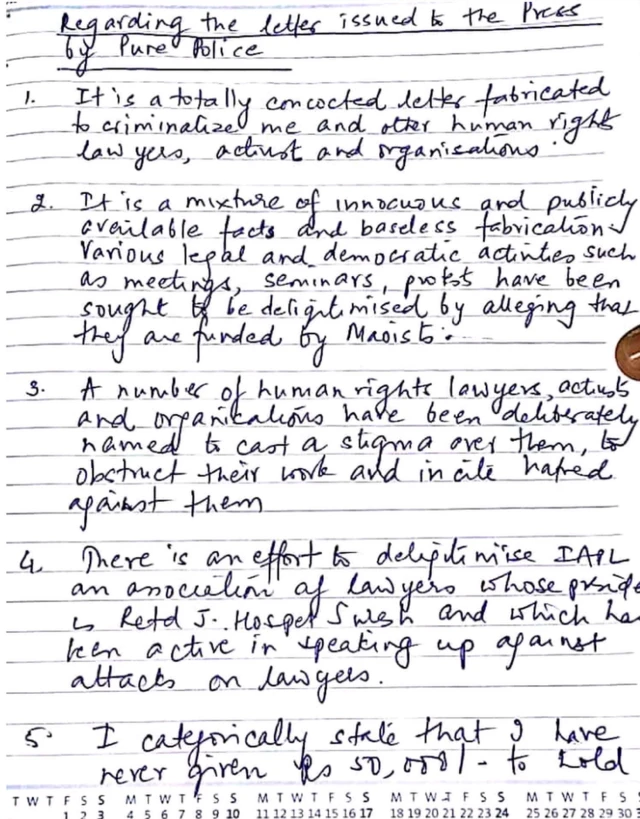 Regarding the letter issued to the Press
by Pune Police
1. It is a totally concocted letter fabricated
to criminalize me and other human right
lawyers, activist and organisations.
2. It is a mixture of innocuous and publicly
available facts and baseless fabrication.
Various legal and democratic activities such
as meetings, seminars, protest have been
sought to be deligitimised by alleging that
they are funded by Maoists.
3. A number of human rights lawyers, activists
and organisations have been deliberately
named to cast a stigma over them, to
obstruct their work and incite hatred
against them
4. There is an effort to deligitimise IAPL
an association of lawyers whose preside
is Retd J. Hospet Suresh and which ha
been active in speaking up against
attacks on lawyers.
5. I categorically state that I have
never given Rs 50,000/- to hold
T W T F S S M T W T F S S M T W T F S S M T W T F S S M T W T F S
1 2 3 4 5 6 7 8 9 10 11 12 13 14 15 16 17 18 19 20 21 22 23 24 25 26 27 28 29 30